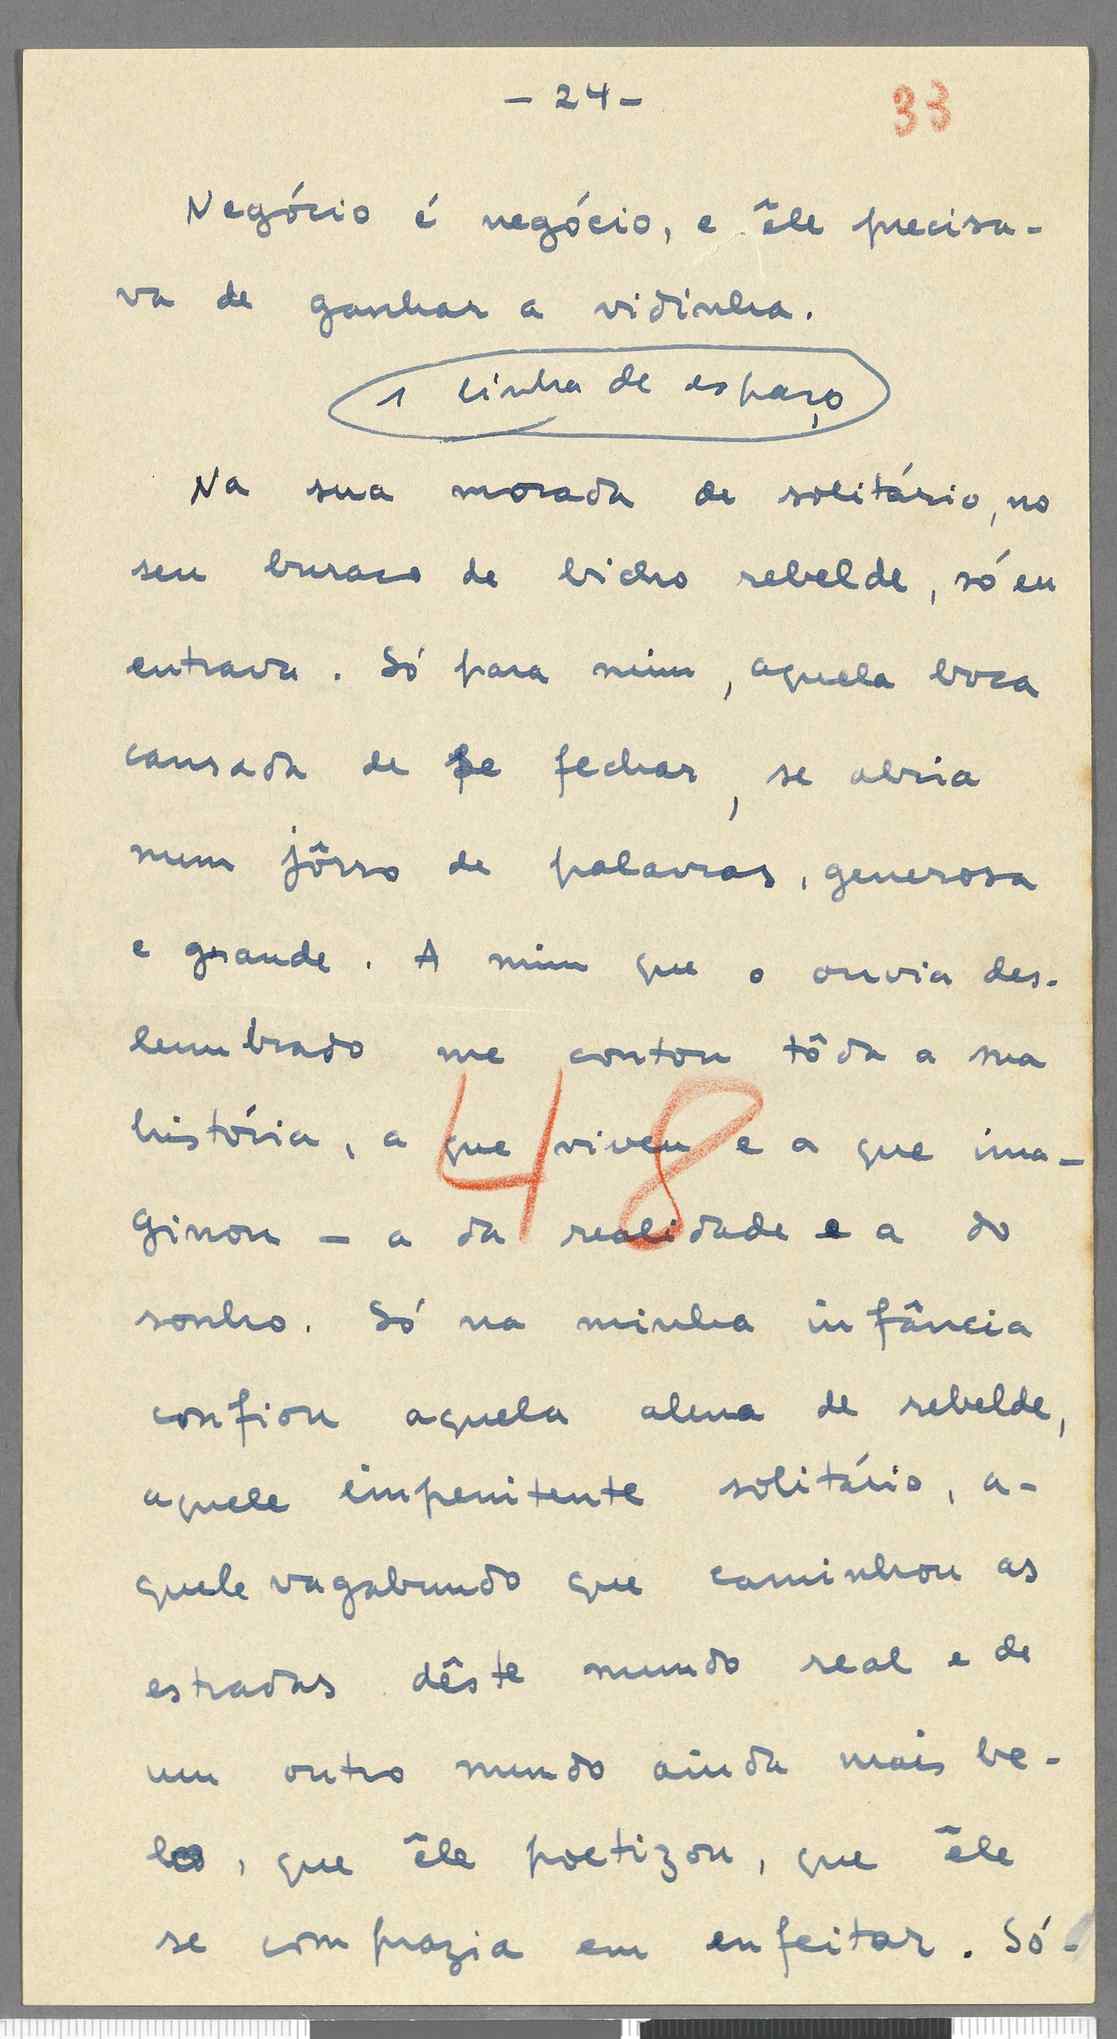 - 24 -
33
Negócio é negócio, e êle precisa-
va de ganhar a vidinha.
1 linha de espaço
Na sua morada de solitário, no
seu buraco de bicho rebelde, só eu
entrava. Só para mim, aquela boca
cansada de se fechar, se abria
num jôrro de palavras, generosa
e grande. A mim que o ouvia des-
lumbrado me contou tôda a sua
história, a que viveu e a que ima-
48
ginou - a da realidade e a do
sonho. Só na minha infância
confiou aquela alma de rebelde,
aquele impenitente solitário, a-
quele vagabundo que caminhou as
estradas dêste mundo real e de
um outro mundo ainda mais be-
lo, que êle poetizou, que êle
se comprazia em enfeitar. Só-